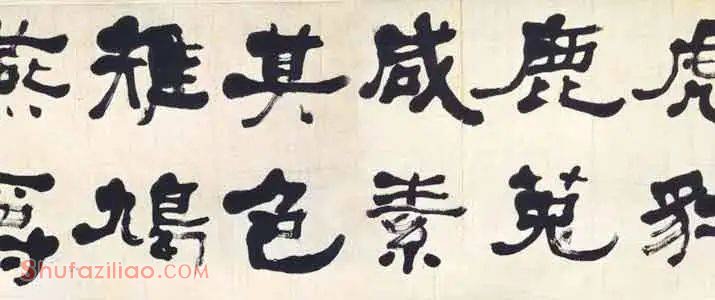 虎豹
鹿兔
咸素
其色
雉鳩
燕爵
Shufaziliao.com